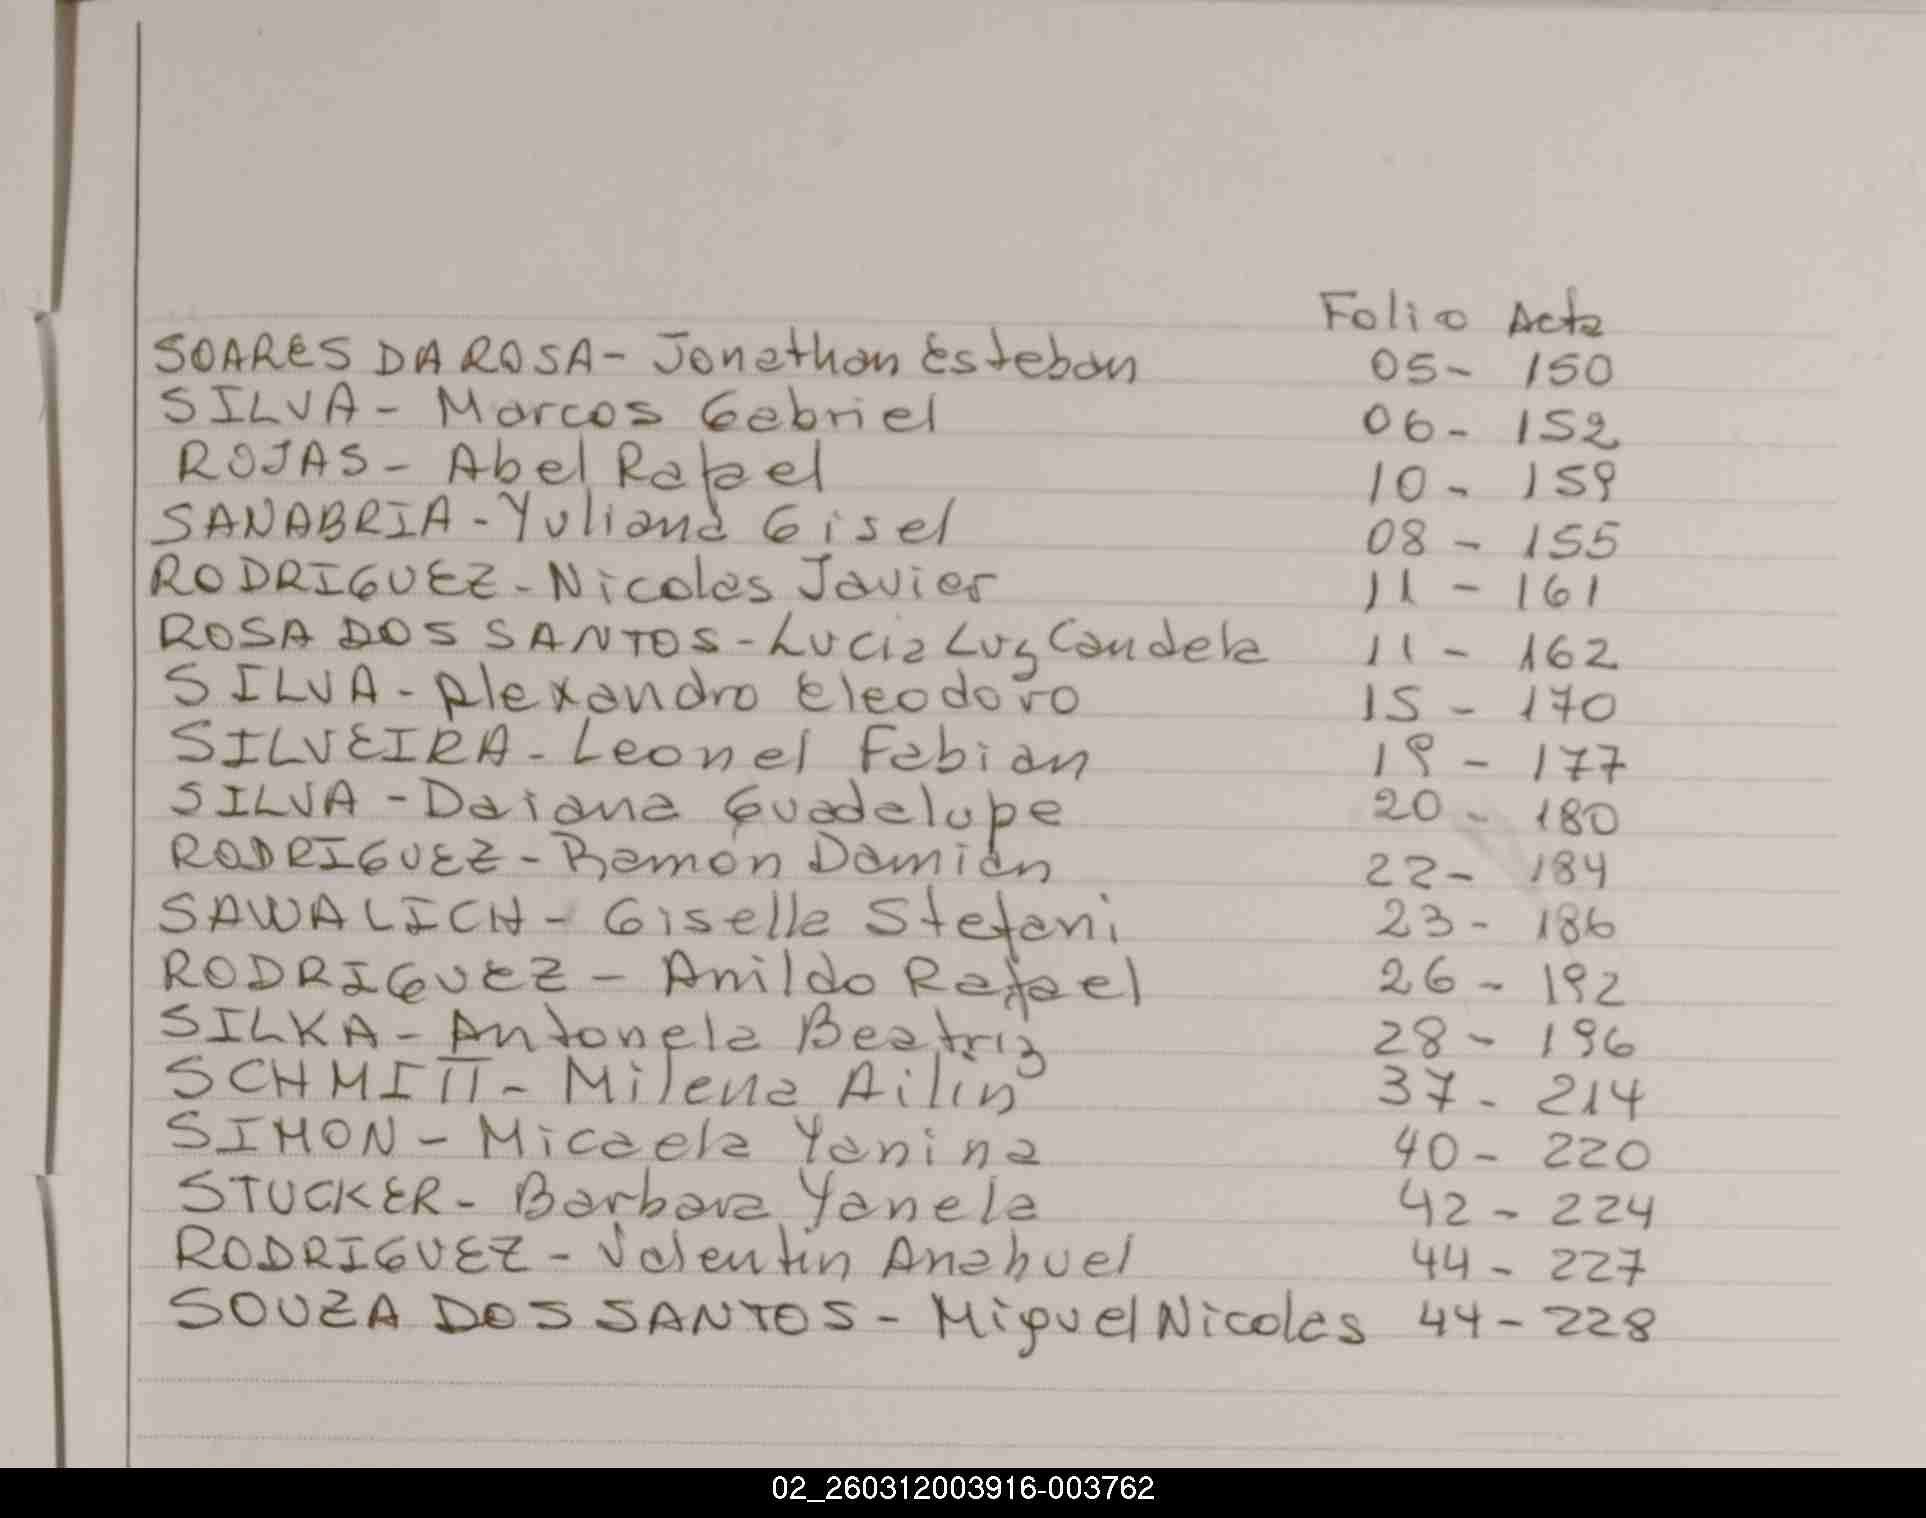 Folio Acta
SOARES DA ROSA - Jonathan Esteban 05 - 150
SILVA - Marcos Gabriel 06 - 152
ROJAS - Abel Rafael 10 - 159
SANABRIA - Yuliana Gisel 08 - 155
RODRIGUEZ - Nicolas Javier 11 - 161
ROSA DOS SANTOS - Lucia Luz Candela 11 - 162
SILVA - Alexandro Eleodoro 15 - 170
SILVEIRA - Leonel Fabian 19 - 177
SILVA - Daiana Guadalupe 20 - 180
RODRIGUEZ - Ramón Damián 22 - 184
SAWALICH - Giselle Stefani 23 - 186
RODRIGUEZ - Anildo Rafael 26 - 192
SILKA - Antonela Beatriz 28 - 196
SCHMITT - Milena Ailin 37 - 214
SIMON - Micaela Yanina 40 - 220
STUCKER - Barbara Yanela 42 - 224
RODRIGUEZ - Valentin Anahuel 44 - 227
SOUZA DOS SANTOS - Miguel Nicolas 44 - 228
02_260312003916-003762